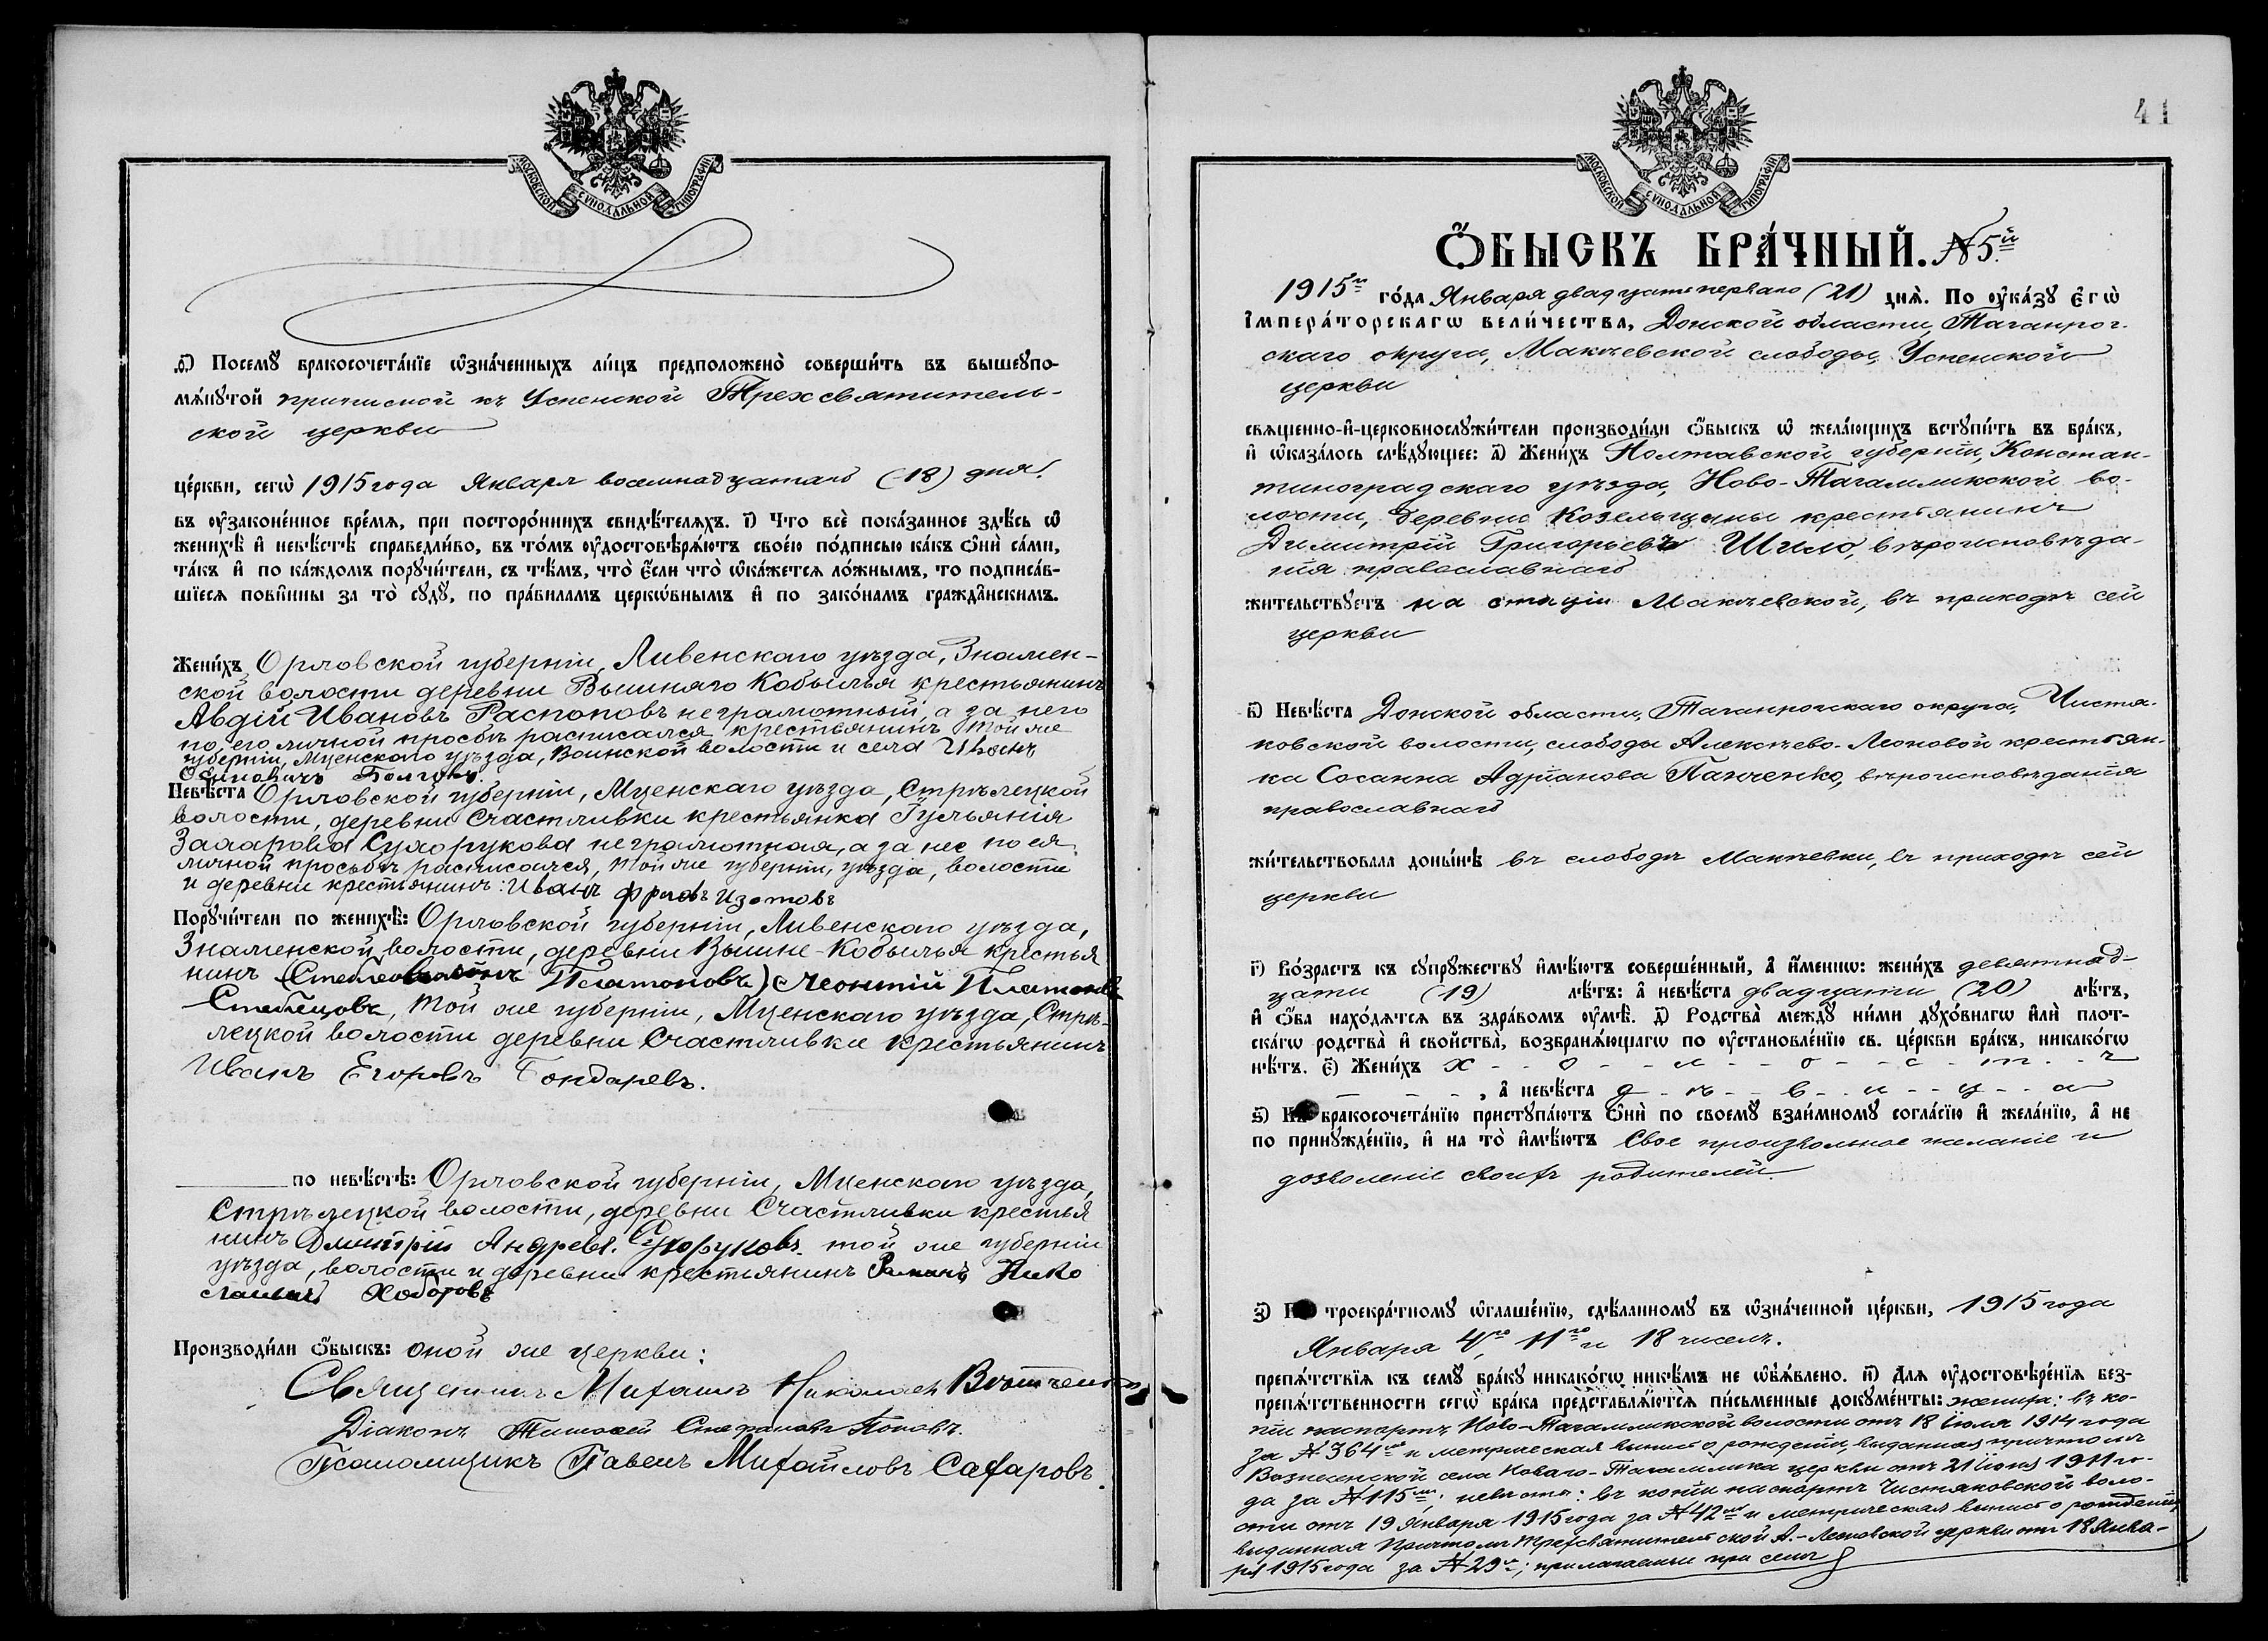 МОСКОВСКОЙ СУНОДАЛЬНОЙ ТИПОГРАФІИ
ѳ҃) Посемꙋ̀ бракосочета́нїе ѡ҆зна́ченныхъ ли́цъ предположенѡ̀ соверши́ть въ вышеꙋпо-
мѧ́нꙋтой приписной къ Успенской Трехсвятитель-
ской церкви
це́ркви, сегѡ̀ 1915 года Января восемнадцатаго (18) дня
въ ᲂу҆законе́нное вре́мѧ, при посторо́ннихъ свидѣ́телѧхъ. і҃) Что̀ всѐ пока́занное здѣ́сь ѡ҆
женихѣ̀ и҆ невѣ́стѣ справедли́во, въ то́мъ ᲂу҆достовѣрѧ́ютъ свое́ю по́дписью ка́къ ѻ҆нѝ са́ми,
та́къ и҆ по ка́ждомъ порꙋчи́тели, съ тѣ́мъ, что̀ є҆́сли что̀ ѡ҆ка́жетсѧ ло́жнымъ, то подписа́в-
шїесѧ пови́нны за то̀ сꙋдꙋ̀, по пра́виламъ церкѡ́внымъ и҆ по зако́намъ гражда́нскимъ.
Жени́хъ Орловской губерніи, Ливенскаго уѣзда, Знамен-
ской волости деревни Вышняго Кобылья крестьянинъ
Авдій Ивановъ Распоповъ неграмотный, а за него
по его личной просьбѣ расписался крестьянинъ той же
губерніи, Мценскаго уѣзда, Воинской волости и села Иванъ
Невѣ́ста Орловской губерніи, Мценскаго уѣзда, Стрѣлецкой
волости, деревни Счастливки крестьянка Гульянія
Захарова Сухорукова неграмотная, а за нее по ея
личной просьбѣ расписался, той же губерніи, уѣзда, волости
и деревни крестьянинъ: Иванъ Фроловъ Изотовъ
Порꙋчи́тели по женихѣ̀: Орловской губерніи, Ливенскаго уѣзда,
Знаменской волости, деревни Вышне-Кобылья крестья
нинъ Платоновъ) Леонтій Платоновъ
Стебецовъ, той же губерніи, Мценскаго уѣзда, Стрѣ-
лецкой волости деревни Счастливки крестьянинъ
Иванъ Егоровъ Бондаревъ.
по невѣ́стѣ: Орловской губерніи, Мценскаго уѣзда,
Стрѣлецкой волости, деревни Счастливки крестья
нинъ Дмитрій Андреев. Сухоруковъ той же губерніи
уѣзда, волости и деревни крестьянинъ Романъ Нико
лаевичъ Ходоровъ
Производи́ли ѻ҆́быскъ: оной же церкви:
Священникъ Михаилъ Николаевъ
Діаконъ Тимоѳей Стефановъ Поповъ.
Псаломщикъ Павелъ Михайловъ Сафаровъ.
41
МОСКОВСКОЙ СУНОДАЛЬНОЙ ТИПОГРАФІИ
Ѻ҆́БЫСКЪ БРА́ЧНЫЙ. №5й
1915го го́да Января двадцать перваго (21) днѧ̀. По ᲂу҆ка́зꙋ є҆гѡ̀
і҆мпера́торскагѡ вели́чества, Донской области, Таганрог-
скаго округа, Макѣевской слободы, Успенской
церкви
свѧщенно-и҆-церковнослꙋжи́тели производи́ли ѻ҆́быскъ ѡ҆ жела́ющихъ встꙋпи́ть въ бра́къ,
и҆ ѡ҆каза́лось слѣ́дꙋющее: а҃) Жени́хъ Полтавской губерніи, Констан-
тиноградскаго уѣзда, Ново-Тагамликской во-
лости, деревни Козельщины крестьянинъ
Димитрій Григорьевъ Шило, вѣроисповѣда-
нія православнаго
жи́тельствꙋетъ на станціи Макѣевской, въ приходѣ сей
церкви
в҃) Невѣ́ста Донской области, Таганрогскаго округа, Чистя-
ковской волости, слободы Алексѣево-Леоновой крестьян-
ка Сосанна Адріанова Панченко, вѣроисповѣданія
православнаго
жи́тельствовала доны́нѣ въ слободѣ Макѣевки, въ приходѣ сей
церкви
г҃) Во́зрастъ къ сꙋпрꙋ́жествꙋ и҆мѣ́ютъ соверше́нный, а҆ и҆́меннѡ: жени́хъ девятнад-
цати (19) лѣ́тъ: а҆ невѣ́ста двадцати (20) лѣ́тъ,
и҆ ѻ҆́ба нахо́дѧтсѧ въ здра́вомъ ᲂу҆мѣ̀. д҃) Родства̀ междꙋ̀ ни́ми дꙋхо́внагѡ и҆лѝ плот-
ска́гѡ родства̀ и҆ свойства̀, возбранѧ́ющагѡ по ᲂу҆становле́нїю св. це́ркви бра́къ, никако́гѡ
нѣ́тъ. є҃) Жени́хъ х - о - л - о - с - т - ъ
, а҆ невѣ́ста д - ѣ - в - и - ц - а
ѕ҃) Къ бракосочета́нїю пристꙋпа́ютъ ѻ҆нѝ по своемꙋ̀ взаи́мномꙋ согла́сїю и҆ жела́нїю, а҆ не
по принꙋжде́нїю, и҆ на то̀ и҆мѣ́ютъ Свое произвольное желаніе и
дозволеніе своихъ родителей.
з҃) По троекра́тномꙋ ѡ҆глаше́нїю, сдѣ́ланномꙋ въ ѡ҆зна́ченной це́ркви, 1915 года
Января 4го, 11го и 18 чиселъ.
препѧ́тствїѧ къ семꙋ̀ бра́кꙋ никако́гѡ никѣ́мъ не ѡ҆б̾ѧ́влено. и҃) Длѧ ᲂу҆достовѣре́нїѧ без-
препѧ́тственности сегѡ̀ бра́ка представлѧ́ютсѧ пи́сьменные докꙋме́нты: жениха: въ ко-
піи паспортъ Ново-Тагамликской волости отъ 18 іюля 1914 года
за № 364мъ и метрическая выпись о рожденіи, выданная причтомъ
Вознесенской села Новаго-Тагамлика церкви отъ 21 іюня 1911 го-
да за № 115мъ; невѣсты: въ копіи паспортъ Чистяковской воло-
сти отъ 19 Января 1915 года за № 42мъ и метрическая выпись о рожденіи,
выданная Причтомъ Трехсвятительской А.-Леоновской церкви отъ 18 Янва-
ря 1915 года за № 29мъ; прилагаемые при семъ